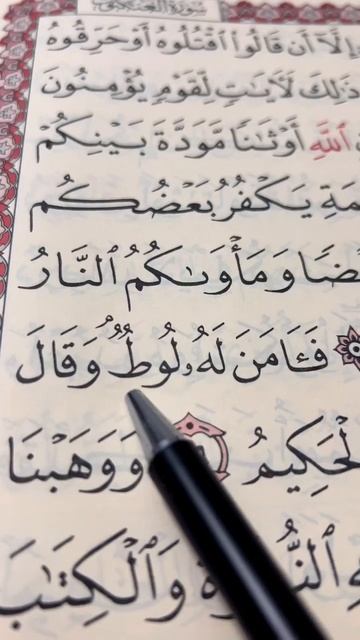 سُورَةُ العَنكَبُوت
إِلَّآ أَن قَالُوا۟ ٱقْتُلُوهُ أَوْ حَرِّقُوهُ
ذَٰلِكَ لَـَٔايَـٰتٍ لِّقَوْمٍ يُؤْمِنُونَ
ٱللَّهِ أَوْثَـٰنًا مَّوَدَّةَ بَيْنِكُمْ
يَكْفُرُ بَعْضُكُم
وَمَأْوَىٰكُمُ ٱلنَّارُ
فَـَٔامَنَ لَهُۥ لُوطٌ ۘ وَقَالَ
ٱلْحَكِيمُ وَوَهَبْنَا
وَٱلْكِتَـٰبَ